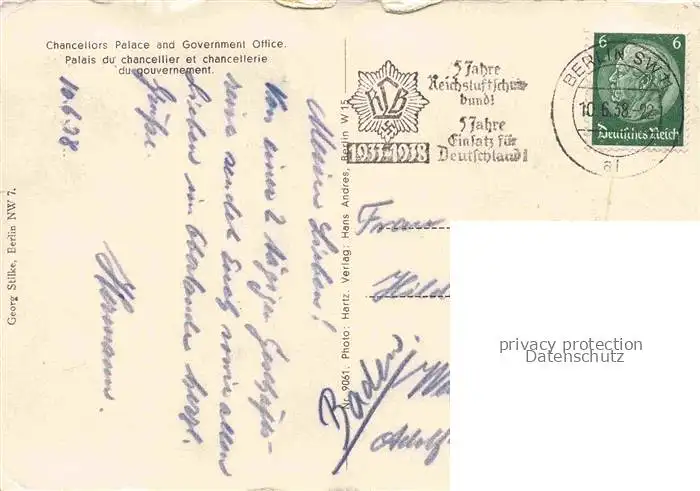 Chancellors Palace and Government Office.
Palais du chancellier et chancellerie
du gouvernement.
10.6.38.
Meine Lieben!
Von einer 2 tägigen Geschäfts-
reise sendet Euch sowie allen
Lieben im Oberlande herzl.
Grüße.
Hermann.
Georg Stilke, Berlin NW 7.
Nr. 9061. Photo: Hartz. Verlag: Hans Andres, Berlin W 15
RLB
1933-1938
5 Jahre
Reichsluftschutz
bund!
5 Jahre
Einsatz für
Deutschland!
BERLIN SW
10.6.38
6 6
Deutsches Reich
Frau
Hild
Baden.
Adolf
privacy protection
Datenschutz